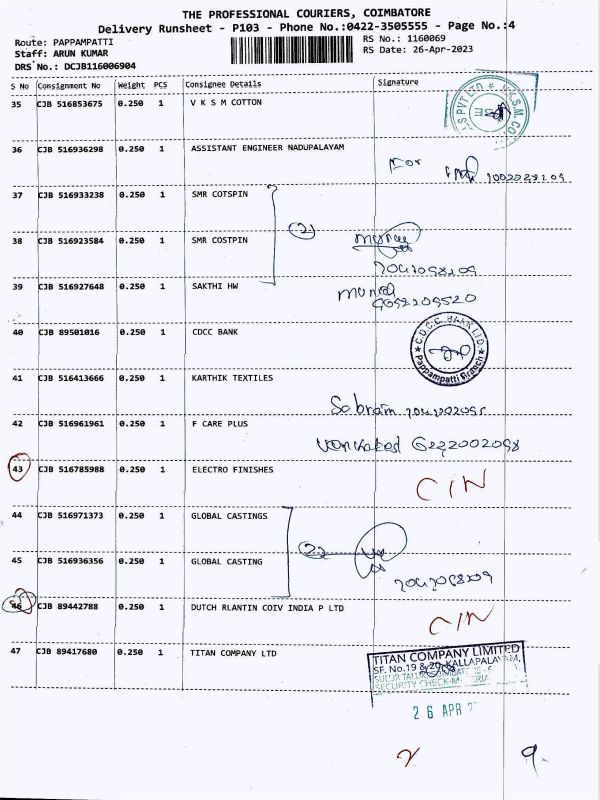 THE PROFESSIONAL COURIERS, COIMBATORE
Delivery Runsheet - P103 - Phone No.:0422-3505555 - Page No.:4
Route: PAPPAMPATTI
RS No.: 1160069
Staff: ARUN KUMAR
RS Date: 26-Apr-2023
DRS No.: DCJB116006904
S No Consignment No Weight PCS Consignee Details Signature
35 CJB 516853675 0.250 1 V K S M COTTON
36 CJB 516936298 0.250 1 ASSISTANT ENGINEER NADUPALAYAM
For
37 CJB 516933238 0.250 1 SMR COTSPIN
38 CJB 516923584 0.250 1 SMR COSTPIN
39 CJB 516927648 0.250 1 SAKTHI HW
40 CJB 89501016 0.250 1 CDCC BANK
C.D.C.C. BANK LTD.
Pappampatti Branch
41 CJB 516413666 0.250 1 KARTHIK TEXTILES
42 CJB 516961961 0.250 1 F CARE PLUS
43 CJB 516785988 0.250 1 ELECTRO FINISHES
C/N
44 CJB 516971373 0.250 1 GLOBAL CASTINGS
45 CJB 516936356 0.250 1 GLOBAL CASTING
46 CJB 89442788 0.250 1 DUTCH RLANTIN COIV INDIA P LTD
C/N
47 CJB 89417680 0.250 1 TITAN COMPANY LTD
TITAN COMPANY LIMITED
SF. No.19 & 20, KALLAPALAYAM,
26 APR
9.